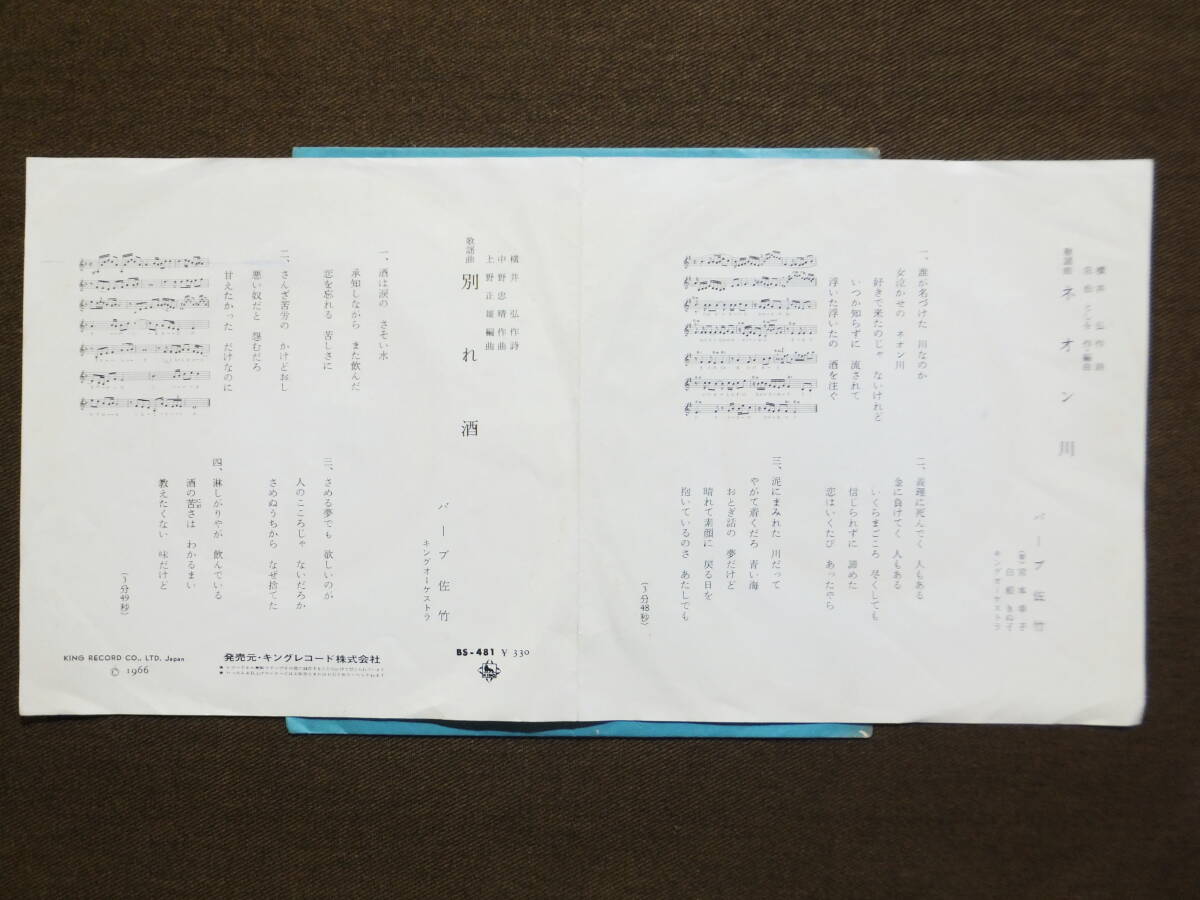 歌謡曲
ネオン川
横井 弘作詩
バーブ佐竹
キングオーケストラ
一、誰が名づけた 川なのか
女泣かせの ネオン川
好きで来たのじゃ ないけれど
いつか知らずに 流されて
浮いた浮いたの 酒を注ぐ
二、義理に死んでく 人もある
金に負けてく 人もある
いくらまごころ 尽くしても
信じられずに 諦めた
恋はいくたび あったやら
三、泥にまみれた 川だって
やがて着くだろ 青い海
おとぎ話の 夢だけど
晴れて素顔に 戻る日を
抱いているのさ あたしでも
(3分48秒)
横井 弘作詩
中野忠晴作曲
上野正雄編曲
歌謡曲
別れ酒
バーブ佐竹
キングオーケストラ
一、酒は涙の さそい水
承知しながら また飲んだ
恋を忘れる 苦しさに
二、さんざ苦労の かけどおし
悪い奴だと 怨むだろ
甘えたかった だけなのに
三、さめる夢でも 欲しいのが
人のこころじゃ ないだろか
さめぬうちから なぜ捨てた
四、淋しがりやが 飲んでいる
酒の苦さは わかるまい
教えたくない 味だけど
(3分49秒)
BS-481 ¥ 330
KING
発売元・キングレコード株式会社
KING RECORD CO., LTD. Japan
© 1966